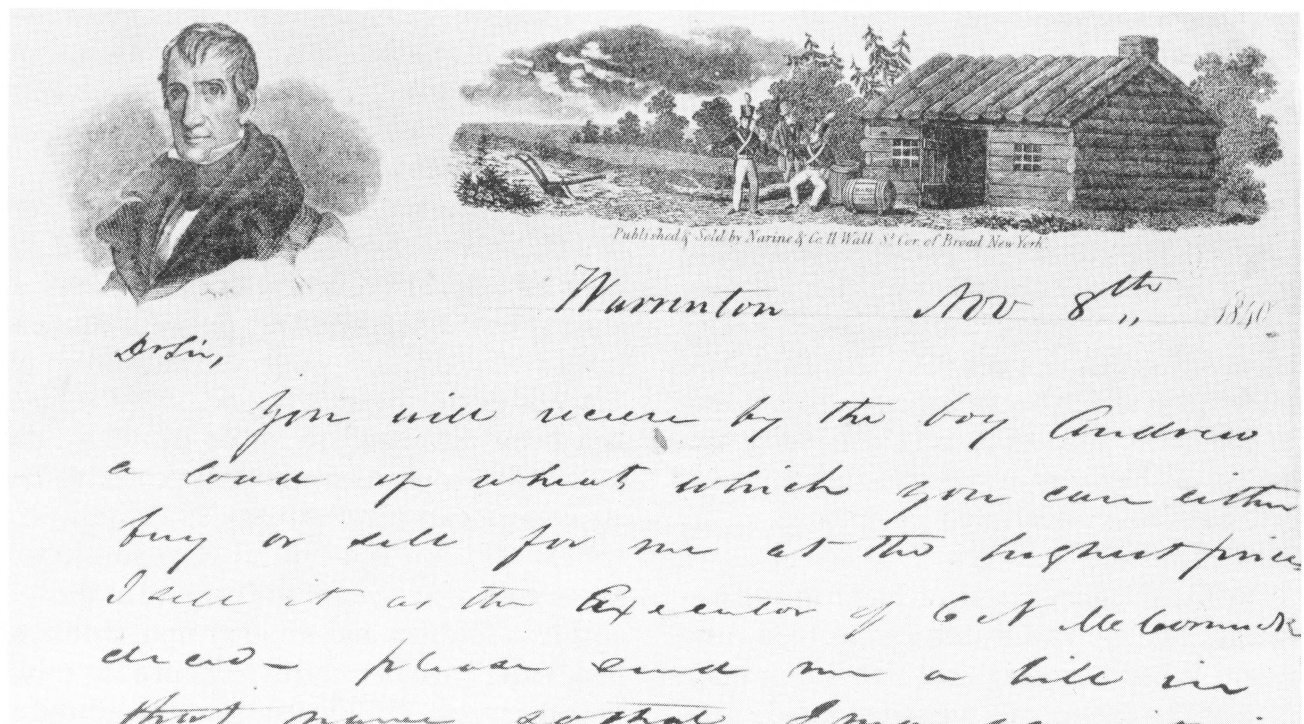 Published & Sold by Narine & Co. 11 Wall St. Cor. of Broad New York.
Warrenton Nov 8th 1840
Dr Sir,
You will receive by the boy Andrew
a load of wheat, which you can either
buy or sell for me at the highest price
I sell it as the Executor of C N McCormick
decd – please send me a bill in
that name so that I may